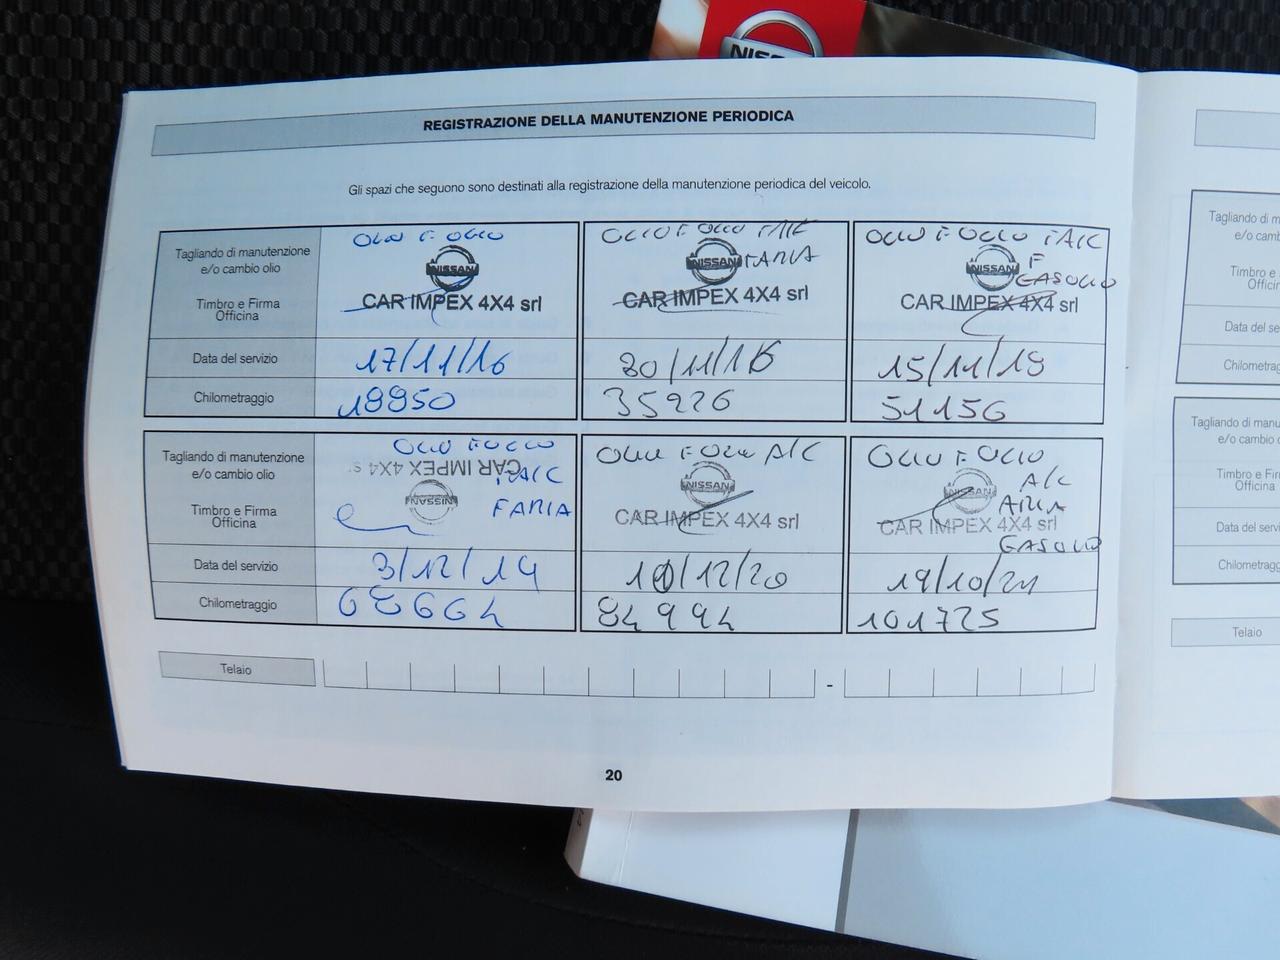 NISSAN
REGISTRAZIONE DELLA MANUTENZIONE PERIODICA
Gli spazi che seguono sono destinati alla registrazione della manutenzione periodica del veicolo.
Tagliando di manutenzione
e/o cambio olio
Timbro e Firma
Officina
OLIO F OLIO
NISSAN
CAR IMPEX 4X4 srl
OLIO F OLIO F A/C
NISSAN F ARIA
CAR IMPEX 4X4 srl
OLIO F OLIO F A/C
F
NISSAN GASOLIO
CAR IMPEX 4X4 srl
Data del servizio
17/11/16
15/11/18
Chilometraggio
35226
51156
Tagliando di manutenzione
e/o cambio olio
Timbro e Firma
Officina
OLIO F OLIO
CAR IMPEX 4X4
F A/C
NISSAN
F ARIA
OLIO F OLIO A/C
NISSAN
CAR IMPEX 4X4 srl
OLIO F OLIO
A/C
NISSAN ARIA
CAR IMPEX 4X4 srl
GASOLIO
Data del servizio
3/12/19
/12/20
19/10/21
Chilometraggio
68664
84994
101725
Telaio
-
20
Tagliando di m
e/o camb
Timbro e
Officin
Data del se
Chilometrag
Tagliando di manu
e/o cambio ol
Timbro e Firm
Officina
Data del servizi
Chilometragg
Telaio